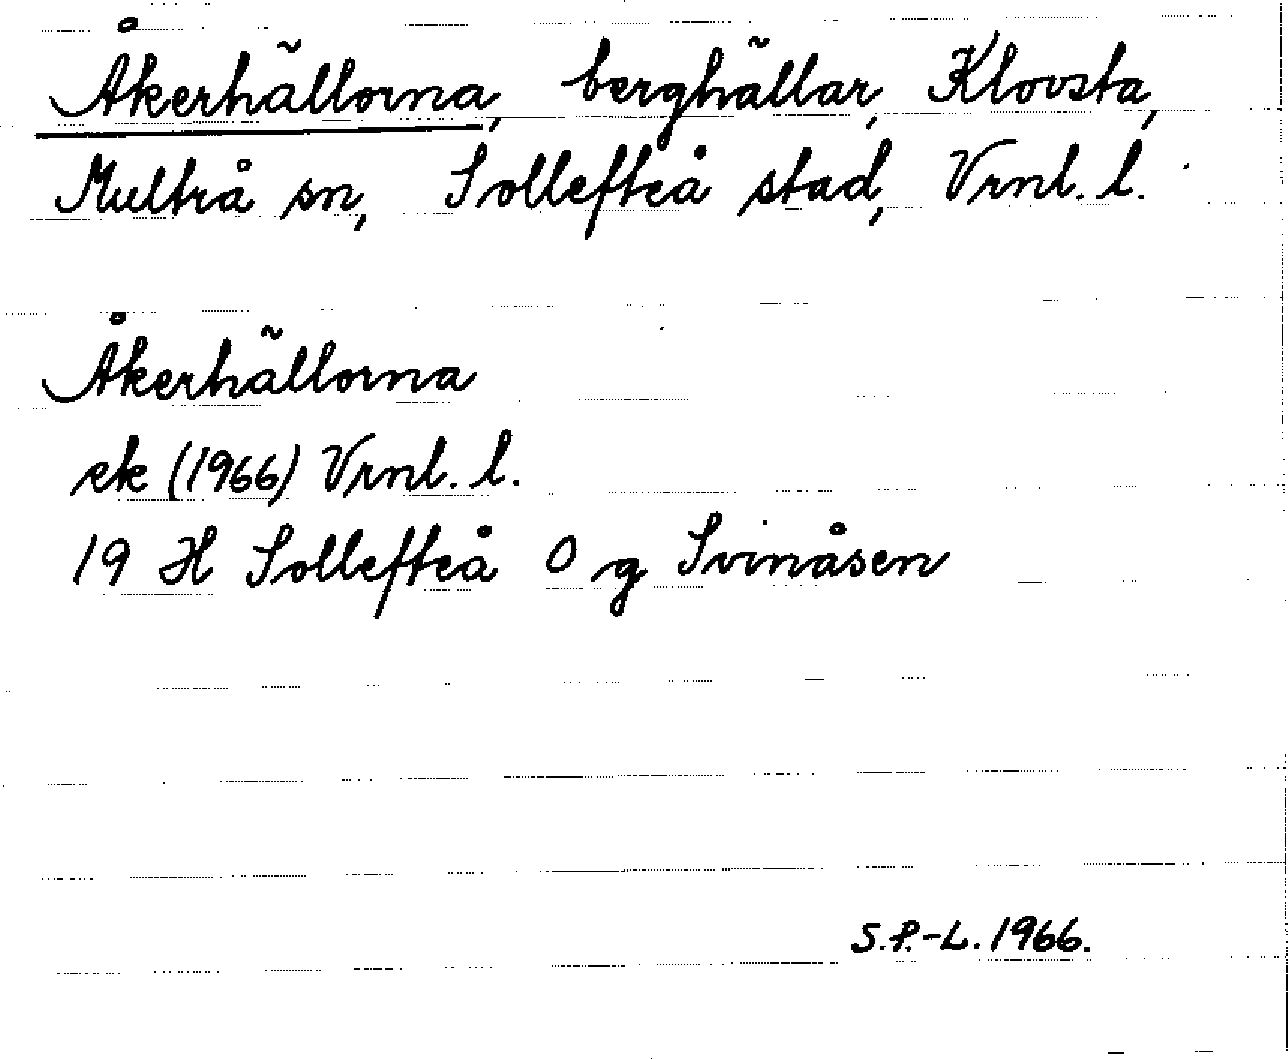 Åkerhällorna, berghällar, Klovsta,
Multrå sn, Sollefteå stad, Vrnl. l.
Åkerhällorna
ek (1966) Vrnl. l.
19 H Sollefteå O g Svinåsen
S.P.-L. 1966.